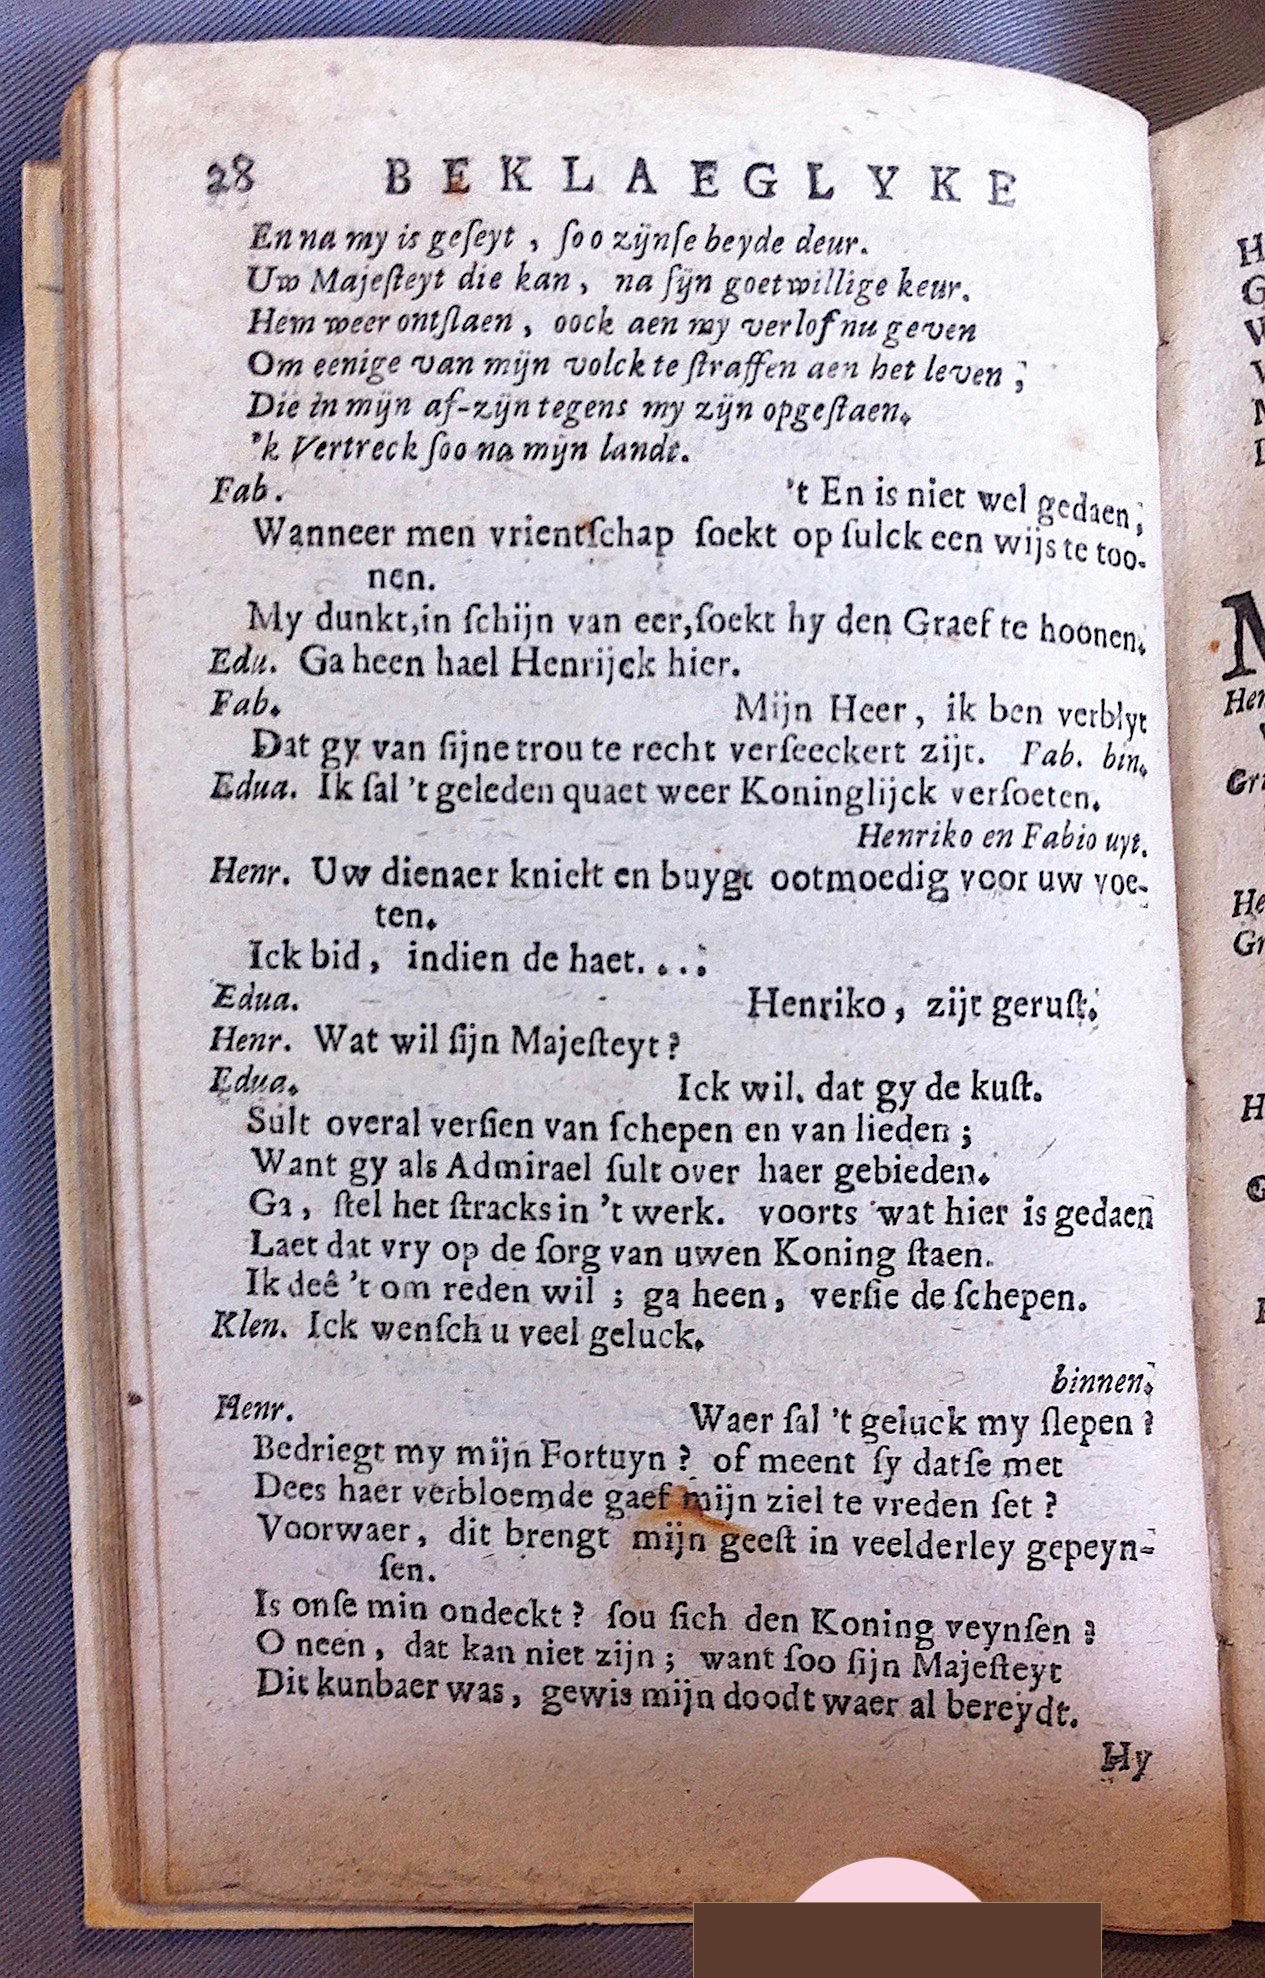 28 BEKLAEGLYKE
En na my is geſeyt, ſoo zijnſe beyde deur.
Uw Majeſteyt die kan, na ſijn goetwillige keur.
Hem weer ontſlaen, oock aen my verlof nu geven
Om eenige van mijn volck te ſtraffen aen het leven;
Die in mijn af-zijn tegens my zijn opgeſtaen.
'k Vertreck ſoo na mijn landt.
Fab. 't En is niet wel gedaen;
Wanneer men vrientſchap ſoekt op ſulck een wijs te too-
nen.
My dunkt, in ſchijn van eer, ſoekt hy den Graef te hoonen.
Edu. Ga heen hael Henrijck hier.
Fab. Mijn Heer, ik ben verblyt
Dat gy van ſijne trou te recht verſeeckert zijt. Fab. bin.
Edua. Ik ſal 't geleden quaet weer Koninglijck verſoeten.
Henriko en Fabio uyt.
Henr. Uw dienaer knielt en buygt ootmoedig voor uw voe-
ten.
Ick bid, indien de haet. . . .
Edua. Henriko, zijt geruſt.
Henr. Wat wil ſijn Majeſteyt?
Edua. Ick wil. dat gy de kuſt.
Sult overal verſien van ſchepen en van lieden;
Want gy als Admirael ſult over haer gebieden.
Ga, ſtel het ſtracks in 't werk. voorts wat hier is gedaen
Laet dat vry op de ſorg van uwen Koning ſtaen.
Ik deê 't om reden wil; ga heen, verſie de ſchepen.
Klen. Ick wenſch u veel geluck.
binnen.
Henr. Waer ſal 't geluck my ſlepen?
Bedriegt my mijn Fortuyn? of meent ſy datſe met
Dees haer verbloemde gaef mijn ziel te vreden ſet?
Voorwaer, dit brengt mijn geeſt in veelderley gepeyn-
ſen.
Is onſe min ondeckt? ſou ſich den Koning veynſen?
O neen, dat kan niet zijn; want ſoo ſijn Majeſteyt
Dit kunbaer was, gewis mijn doodt waer al bereydt.
Hy